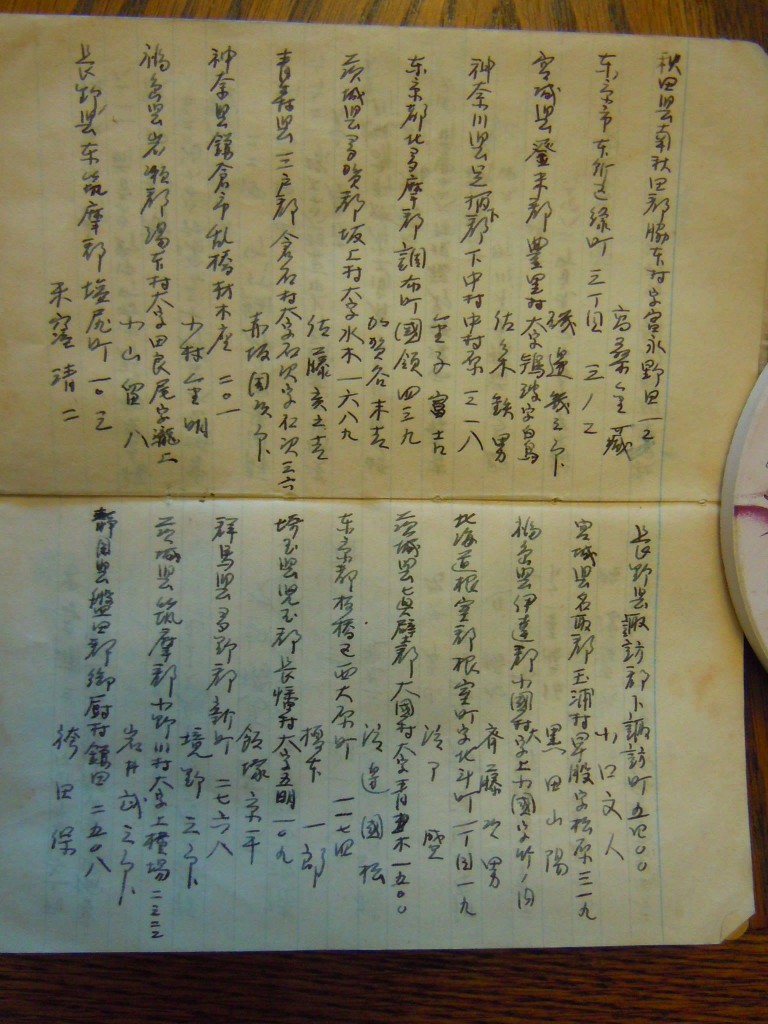 秋田县南秋田郡脇本村字宮永野田一二
高桑金蔵
东京市
緑町三丁目三ノ二
磯邊
宮城县登米郡豊里村大字鴇波字白鳥
佐
鉄男
神奈川县足柄下郡下中村中村原一三一八
金子富吉
东京都北多摩郡調布町國領四三九
加賀谷末吉
茨城县多賀郡坂上村大字水木一六八九
佐藤亥之吉
青森县三戸郡倉石村大字石沢字石沢三六
赤坂
神奈县鎌倉市乱橋材木座二〇一
小村金明
福島县岩瀬郡湯本村大字田良尾字瀧上
小山留八
長野县东筑摩郡塩尻町一〇三
清二
長野县諏訪郡下諏訪町五四〇〇
小口文人
宮城县名取郡玉浦村早股字松原三一九
黒田山陽
福島县伊達郡小國村大字上小國字竹ノ内
斉藤次男
北海道根室郡根室町字北斗町一丁目一九
茨城县真壁郡大國村大字青木一五〇〇
渡邉國松
东京都板橋区西大原町一一七四
橋本一郎
埼玉县児玉郡長幡村大字五明一〇九
飯塚京平
群馬县多野郡新町二七六八
境野三郎
茨城县筑摩郡小野川村大字上横場二三二二
岩井武三郎
静岡县磐田郡御厨村鎌田二五〇八
袴田保